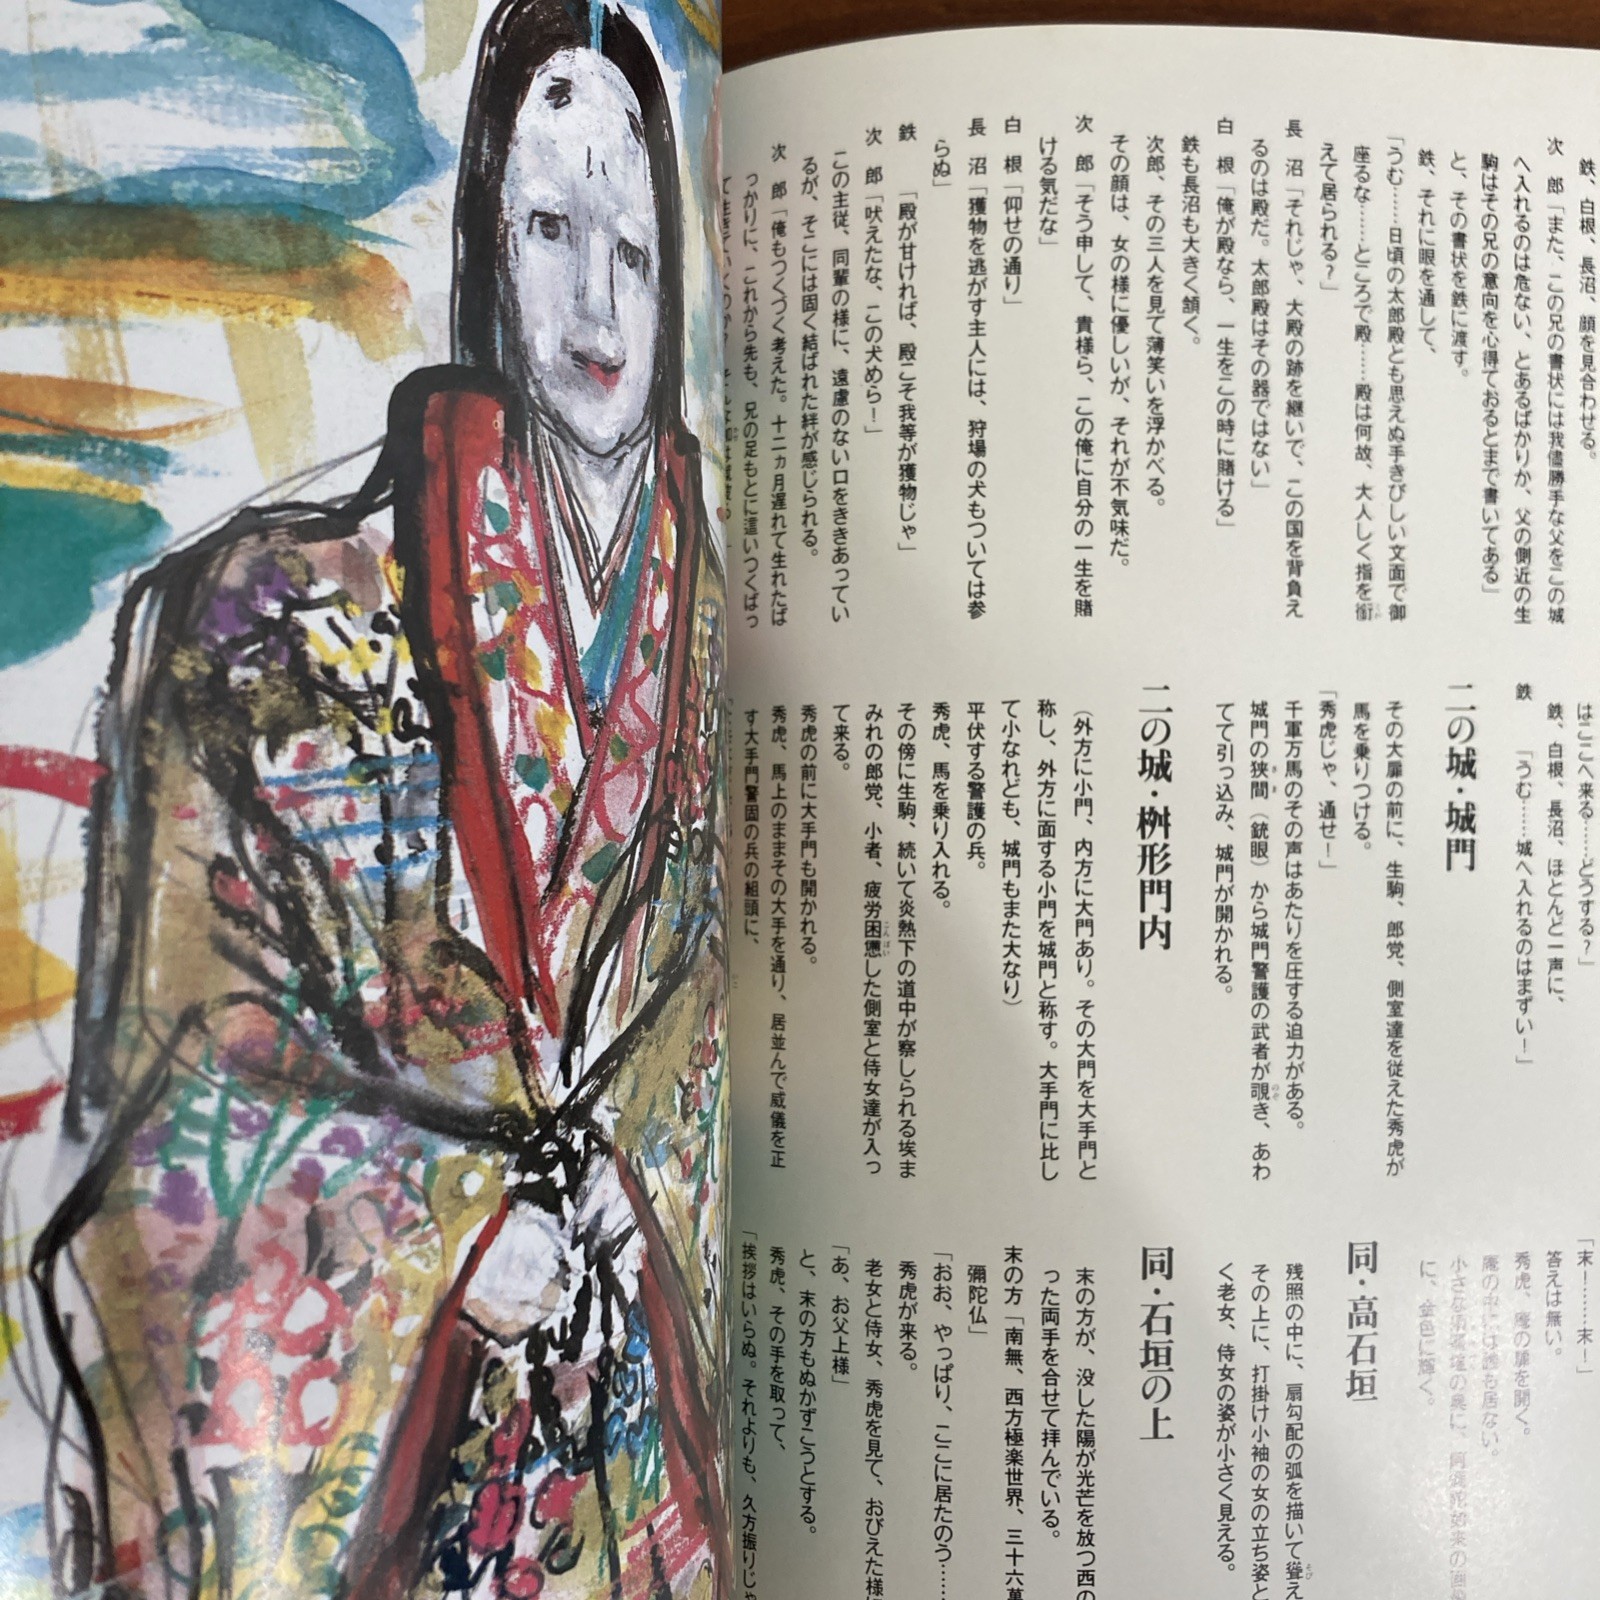 鉄、白根、長沼、顔を見合わせる。
次　郎「また、この兄の書状には我儘勝手な父をこの城
へ入れるのは危ない、とあるばかりか、父の側近の生
駒はその兄の意向を心得ておるとまで書いてある」
と、その書状を鉄に渡す。
鉄、それに眼を通して、
「うむ……日頃の太郎殿とも思えぬ手きびしい文面で御
座るな……ところで殿……殿は何故、大人しく指を銜
えて居られる？」
長　沼「それじゃ、大殿の跡を継いで、この国を背負え
るのは殿だ。太郎殿はその器ではない」
白　根「俺が殿なら、一生をこの時に賭ける」
鉄も長沼も大きく頷く。
次郎、その三人を見て薄笑いを浮かべる。
その顔は、女の様に優しいが、それが不気味だ。
次　郎「そう申して、貴様ら、この俺に自分の一生を賭
ける気だな」
白　根「仰せの通り」
長　沼「獲物を逃がす主人には、狩場の犬もついては参
らぬ」
鉄　　「殿が甘ければ、殿こそ我等が獲物じゃ」
次　郎「吠えたな、この犬めら！」
この主従、同輩の様に、遠慮のない口をききあってい
るが、そこには固く結ばれた絆が感じられる。
次　郎「俺もつくづく考えた。十二ヵ月遅れて生れたば
っかりに、これから先も、兄の足もとに這いつくばっ
て生きていくのか？
はここへ来る……どうする？」
鉄、白根、長沼、ほとんど一声に、
鉄　　「うむ……城へ入れるのはまずい！」
二の城・城門
その大扉の前に、生駒、郎党、側室達を従えた秀虎が
馬を乗りつける。
「秀虎じゃ、通せ！」
千軍万馬のその声はあたりを圧する迫力がある。
城門の狭間（銃眼）から城門警護の武者が覗き、あわ
てて引っ込み、城門が開かれる。
二の城・桝形門内
（外方に小門、内方に大門あり。その大門を大手門と
称し、外方に面する小門を城門と称す。大手門に比し
て小なれども、城門もまた大なり）
平伏する警護の兵。
秀虎、馬を乗り入れる。
その傍に生駒、続いて炎熱下の道中が察しられる埃ま
みれの郎党、小者、疲労困憊した側室と侍女達が入っ
て来る。
秀虎の前に大手門も開かれる。
秀虎、馬上のままその大手を通り、居並んで威儀を正
す大手門警固の兵の組頭に、
「末！……末！」
答えは無い。
秀虎、庵の扉を開く。
庵の中には誰も居ない。
に、金色に輝く。
同・高石垣
残照の中に、扇勾配の弧を描いて聳え
その上に、打掛け小袖の女の立ち姿と
く老女、侍女の姿が小さく見える。
同・石垣の上
末の方が、没した陽が光芒を放つ西の
った両手を合せて拝んでいる。
末の方「南無、西方極楽世界、三十六萬
彌陀仏」
「おお、やっぱり、ここに居たのう……
秀虎が来る。
老女と侍女、秀虎を見て、おびえた様
「あ、お父上様」
と、末の方もぬかずこうとする。
秀虎、その手を取って、
「挨拶はいらぬ。それよりも、久方振りじゃ